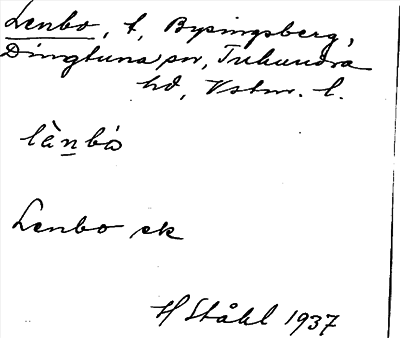 Lenbo, t, Bysingsberg,
Dingtuna sn, Tuhundra
hd, Vstm. l.
lànbó
Lenbo ek
H Ståhl 1937